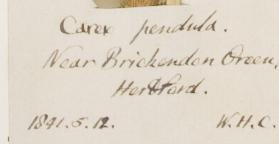 Carex pendula.
Near Brickendon Green,
Hertford.
1841.5.12. W.H.C.